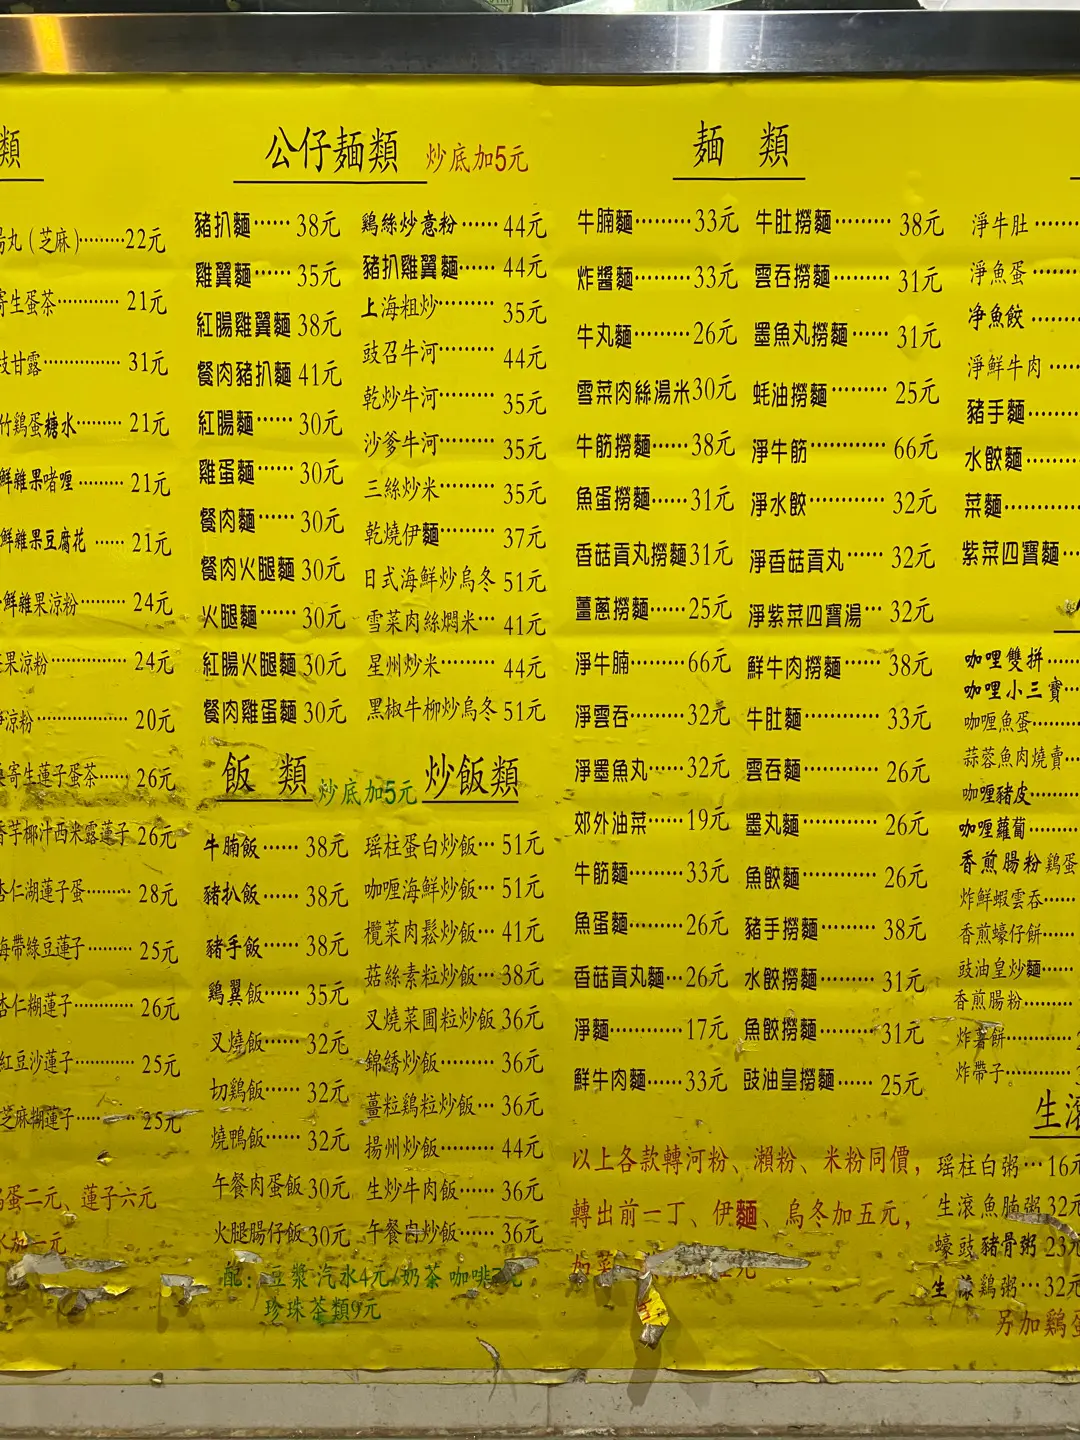 類
湯丸(芝麻)………22元
寄生蛋茶…………21元
枝甘露……………31元
竹鷄蛋糖水………21元
鮮雜果啫喱………21元
鮮雜果豆腐花……21元
鮮雜果涼粉………24元
果涼粉……………24元
涼粉………………20元
寄生蓮子蛋茶……26元
香芋椰汁西米露蓮子26元
杏仁湖蓮子蛋……28元
海帶綠豆蓮子……25元
杏仁糊蓮子………26元
紅豆沙蓮子………25元
芝麻糊蓮子………25元
蛋二元、蓮子六元
加一元
公仔麵類 炒底加5元
豬扒麵……38元
雞翼麵……35元
紅腸雞翼麵38元
餐肉豬扒麵41元
紅腸麵……30元
雞蛋麵……30元
餐肉麵……30元
餐肉火腿麵30元
火腿麵……30元
紅腸火腿麵30元
餐肉雞蛋麵30元
鷄絲炒意粉……44元
豬扒雞翼麵……44元
上海粗炒………35元
豉召牛河………44元
乾炒牛河………35元
沙爹牛河………35元
三絲炒米………35元
乾燒伊麵………37元
日式海鮮炒烏冬51元
雪菜肉絲燜米…41元
星州炒米………44元
黑椒牛柳炒烏冬51元
飯類 炒底加5元
牛腩飯……38元
豬扒飯……38元
豬手飯……38元
鷄翼飯……35元
叉燒飯……32元
切鷄飯……32元
燒鴨飯……32元
午餐肉蛋飯30元
火腿腸仔飯30元
炒飯類
瑶柱蛋白炒飯…51元
咖喱海鮮炒飯…51元
欖菜肉鬆炒飯…41元
菇絲素粒炒飯…38元
叉燒菜圃粒炒飯36元
錦綉炒飯………36元
薑粒鷄粒炒飯…36元
揚州炒飯………44元
生炒牛肉飯……36元
午餐肉炒飯……36元
配：豆漿汽水4元/奶茶咖啡7元
珍珠茶類9元
麵類
牛腩麵………33元
炸醬麵………33元
牛丸麵………26元
雪菜肉絲湯米30元
牛筋撈麵……38元
魚蛋撈麵……31元
香菇貢丸撈麵31元
薑蔥撈麵……25元
淨牛腩………66元
淨雲吞………32元
淨墨魚丸……32元
郊外油菜……19元
牛筋麵………33元
魚蛋麵………26元
香菇貢丸麵…26元
淨麵…………17元
鮮牛肉麵……33元
牛肚撈麵………38元
雲吞撈麵………31元
墨魚丸撈麵……31元
蚝油撈麵………25元
淨牛筋…………66元
淨水餃…………32元
淨香菇貢丸……32元
淨紫菜四寶湯…32元
鮮牛肉撈麵……38元
牛肚麵…………33元
雲吞麵…………26元
墨丸麵…………26元
魚餃麵…………26元
豬手撈麵………38元
水餃撈麵………31元
魚餃撈麵………31元
豉油皇撈麵……25元
以上各款轉河粉、瀨粉、米粉同價，
轉出前一丁、伊麵、烏冬加五元，
加菜
淨牛肚……
淨魚蛋………
净魚餃………
淨鮮牛肉……
豬手麵………
水餃麵………
菜麵…………
紫菜四寶麵…
咖哩雙拼……
咖哩小三寶…
咖喱魚蛋……
蒜蓉魚肉燒賣…
咖喱豬皮……
咖喱蘿蔔……
香煎腸粉鷄蛋
炸鮮蝦雲吞……
香煎蠔仔餅……
豉油皇炒麵……
香煎腸粉………
炸薯餅…………
炸帶子…………
生滾
瑶柱白粥…16元
生滾魚腩粥32元
蠔豉豬骨粥23元
生滾鷄粥…32元
另加鷄蛋